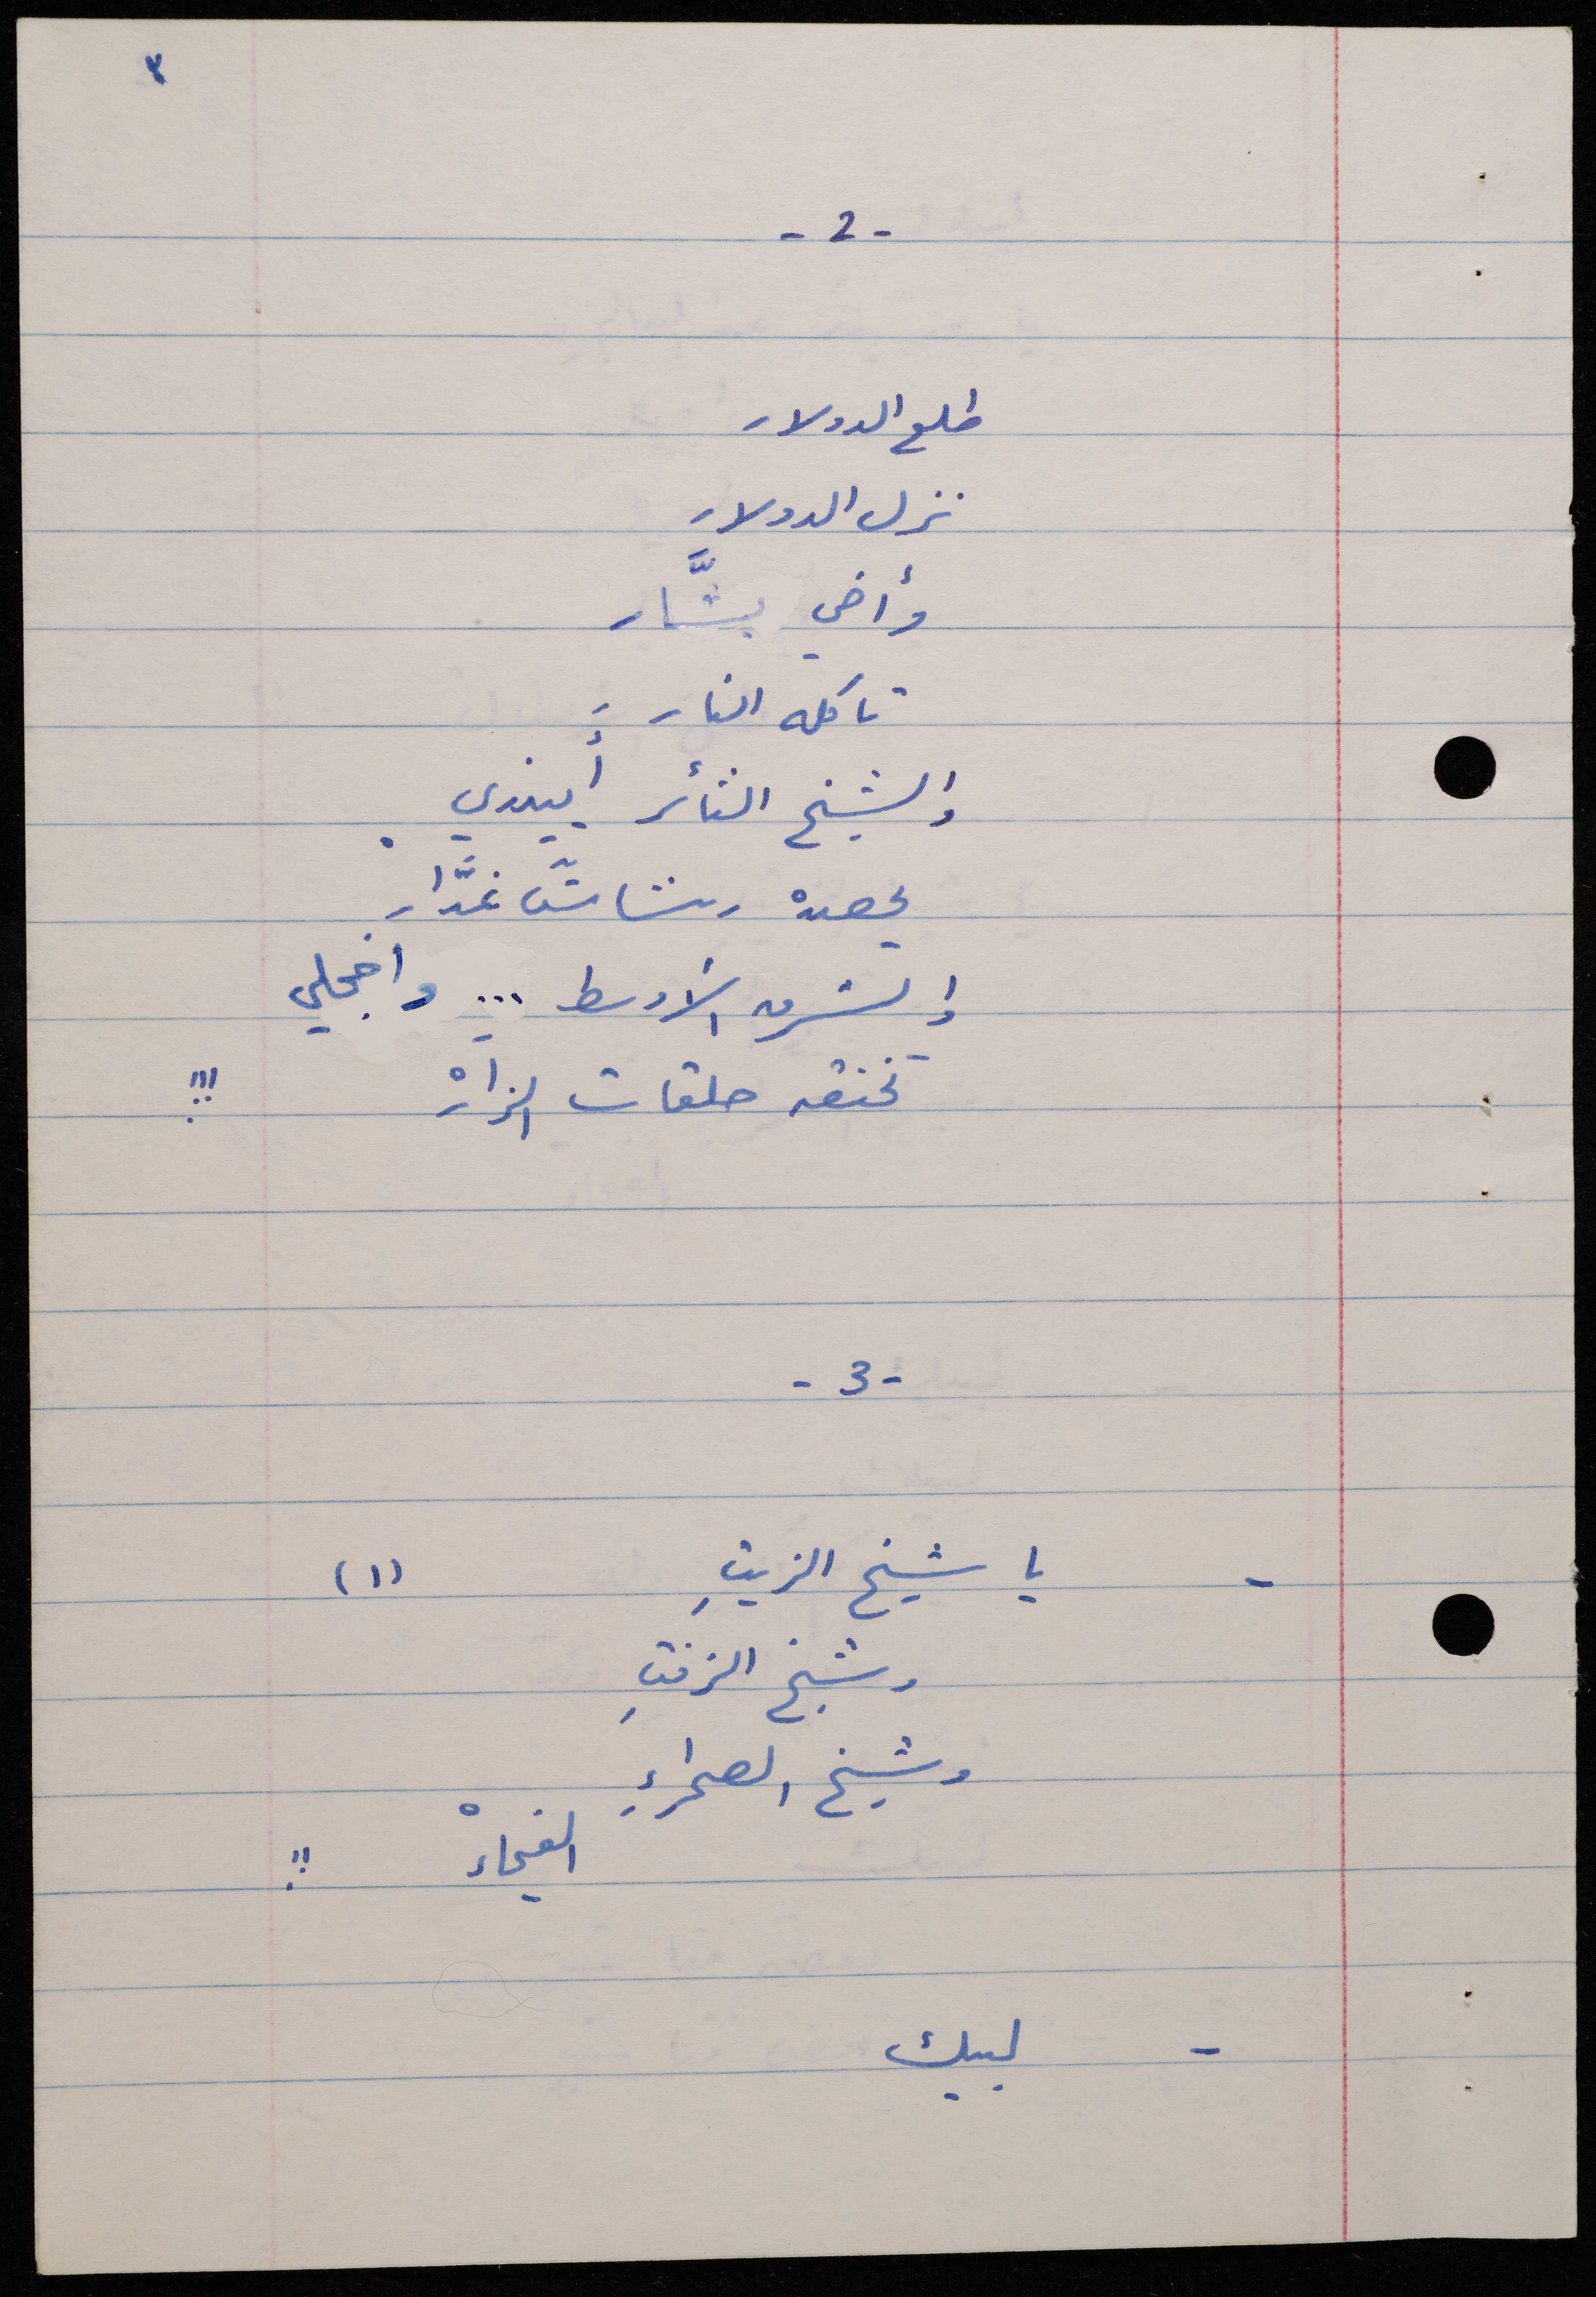 ٣
- 2 -
طلع الدولار
نزل الدولار
وأخي بشَّار
تاكله النار
والشيخ الثائر أَيفندي
يحصده رشاشٌ غدَّار
والشرق الأوسط ... واخجلي
تخنقه حلقات الزارْ !!!
- 3 -
- يا شيخ الزيتِ (١)
وشيخ الزفتِ
وشيخ الصحراءِ
الفيحاءْ !!
- لبيك